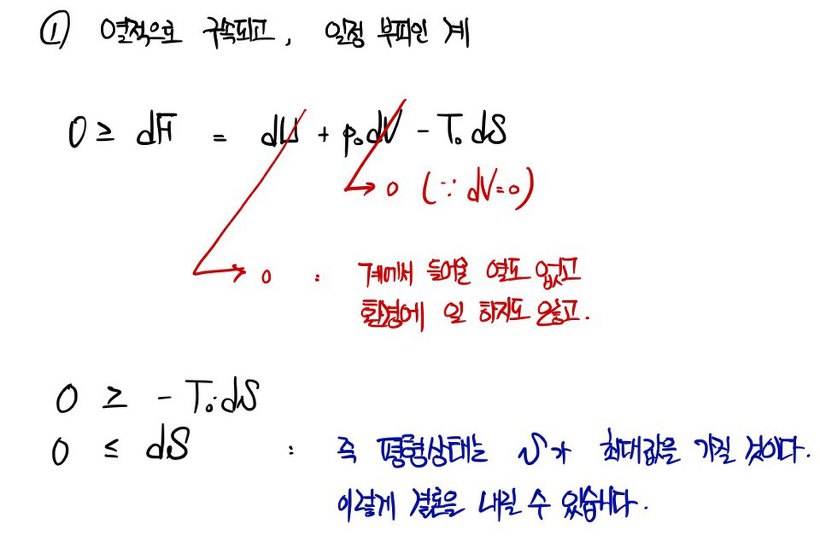 ① 열적으로 구속되고, 일정 부피인 계
0 ≥ dA = dU + p₀dV - T₀dS
→ 0 (∵ dV=0)
→ 0 : 계에서 들어온 열도 없고
환경에 일 하지도 않고.
0 ≥ - T₀·dS
0 ≤ dS : 즉 평형상태는 S가 최대값을 가질 것이다.
이렇게 결론을 내릴 수 있습니다.